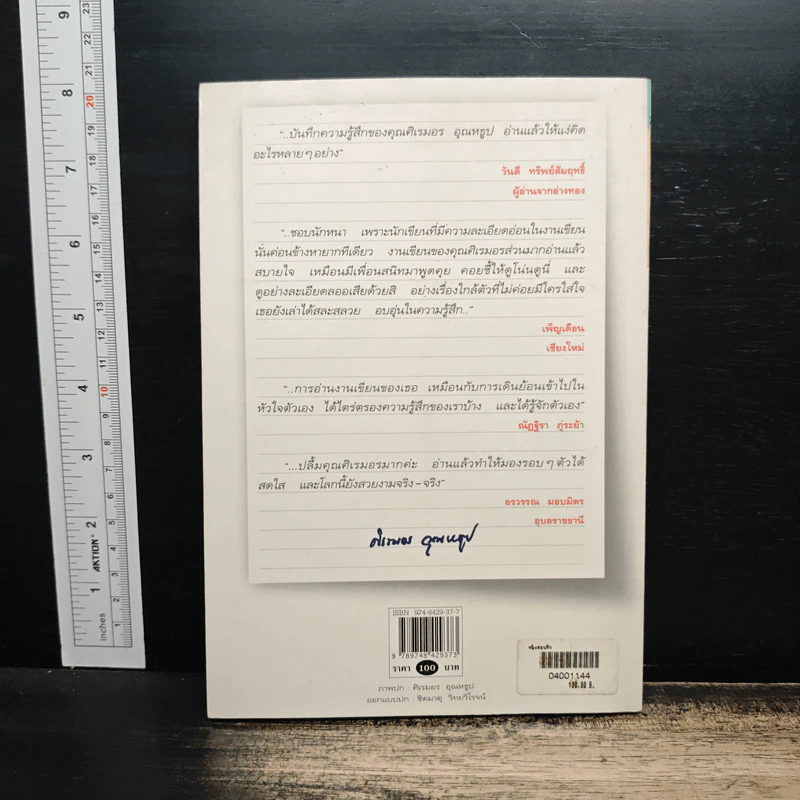 "..บันทึกความรู้สึกของคุณศิเรมอร อุณหธูป อ่านแล้วให้แง่คิด
อะไรหลาย ๆ อย่าง"
วันดี ทรัพย์สัมฤทธิ์
ผู้อ่านจากอ่างทอง
"..ชอบนักหนา เพราะนักเขียนที่มีความละเอียดอ่อนในงานเขียน
นั่นค่อนข้างหายากทีเดียว งานเขียนของคุณศิเรมอรส่วนมากอ่านแล้ว
สบายใจ เหมือนมีเพื่อนสนิทมาพูดคุย คอยชี้ให้ดูโน่นดูนี่ และ
ดูอย่างละเอียดลออเสียด้วยสิ อย่างเรื่องใกล้ตัวที่ไม่ค่อยมีใครใส่ใจ
เธอยังเล่าได้สละสลวย อบอุ่นในความรู้สึก.."
เพ็ญเดือน
เชียงใหม่
"..การอ่านงานเขียนของเธอ เหมือนกับการเดินย้อนเข้าไปใน
หัวใจตัวเอง ได้ไตร่ตรองความรู้สึกของเราบ้าง และได้รู้จักตัวเอง"
ณัฏฐิรา ภู่ระย้า
"...ปลื้มคุณศิเรมอรมากค่ะ อ่านแล้วทำให้มองรอบ ๆ ตัวได้
สดใส และโลกนี้ยังสวยงามจริง-จริง"
อรวรรณ มอบมิตร
อุบลราชธานี
ศิเรมอร อุณหธูป
ISBN 974-8429-37-7
9 789748 429373
ราคา 100 บาท
ภาพปก : ศิเรมอร อุณหธูป
ออกแบบปก : ชิดมาตุ วิทยวิโรจน์
04001144
100.00 ฿.
inches
AKTION
1 2 3 4 5 6 7 8 9
1 2 3 4 5 6 7 8 9 10 11 12 13 14 15 16 17 18 19 20 21 22 23